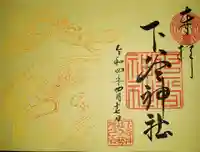 奉拝
下谷神社
令和四年四月十七日